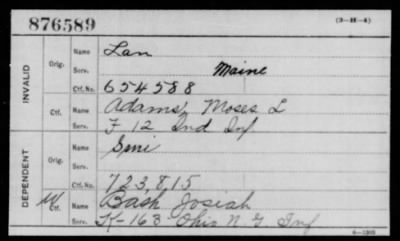 876589 (3-H-4)
INVALID
Orig. Name Lan
Serv. Maine
Ctf. No. 654588
Ctf. Name Adams, Moses L
Serv. F 12 Ind Inf
DEPENDENT
Orig. Name Smi
Serv.
Ctf. No. 723,815
W Ctf. Name Bash Josiah
Serv. K-163 Ohio N G Inf